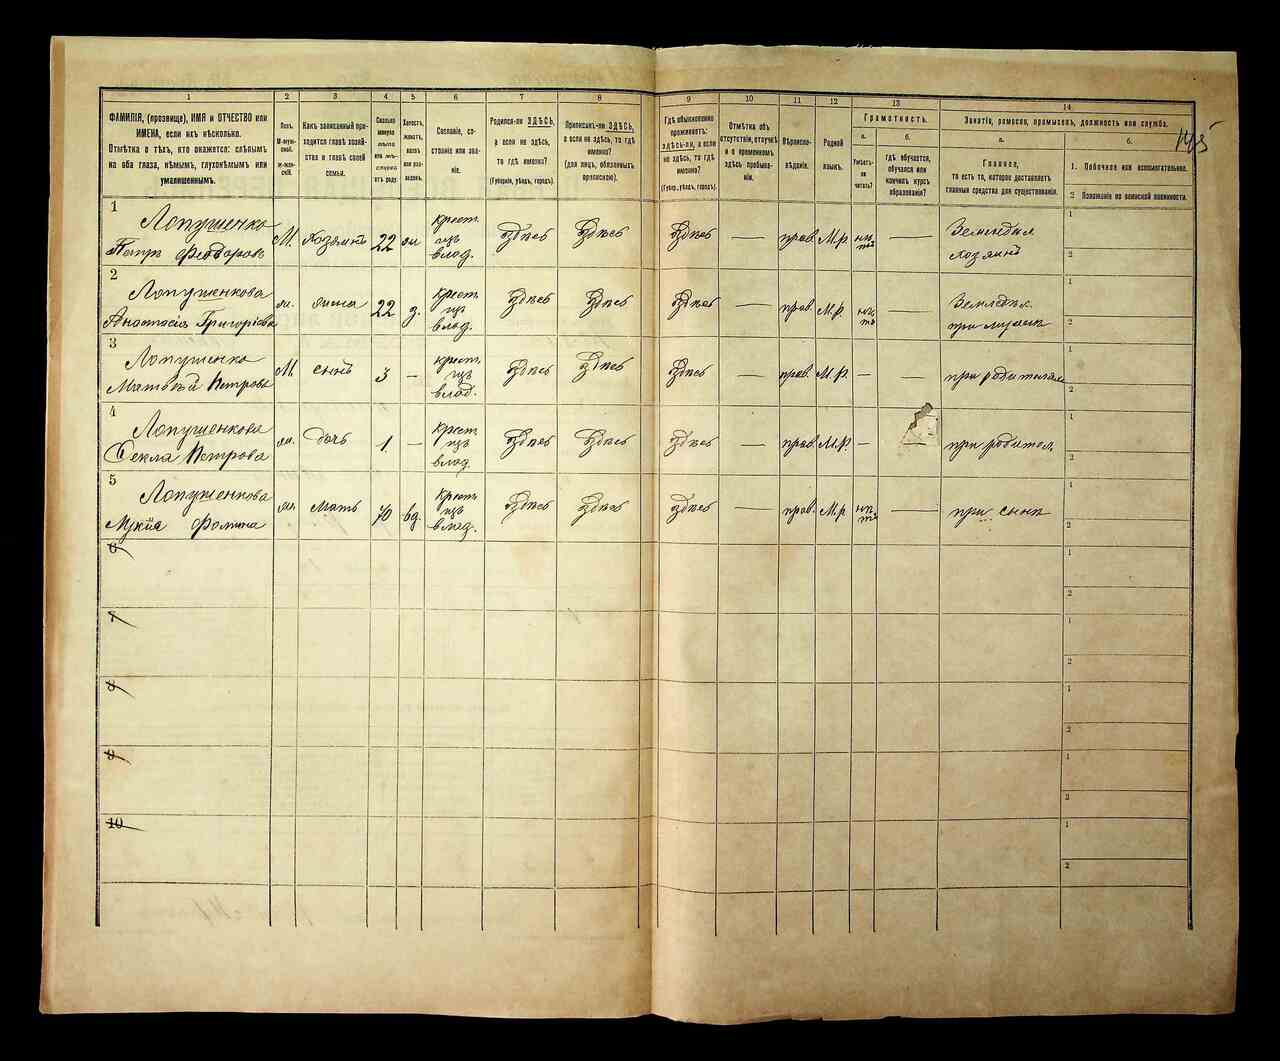 1 2 3 4 5 6 7 8 9 10 11 12 13 14
ФАМИЛІЯ, (прозвище), ИМЯ и ОТЧЕСТВО или
ИМЕНА, если ихъ нѣсколько.
Отмѣтка о тѣхъ, кто окажется: слѣпымъ
на оба глаза, нѣмымъ, глухонѣмымъ или
умалишеннымъ.
Полъ.
М-муж-
ской.
Ж-жен-
скій.
Какъ записанный при-
ходится главѣ хозяй-
ства и главѣ своей
семьи.
Сколько
минуло
лѣтъ
или мѣ-
сяцевъ
отъ роду
Холостъ,
женатъ,
вдовъ
или раз-
веденъ.
Сословіе, со-
стояніе или зва-
ніе.
Родился-ли ЗДѢСЬ,
а если не здѣсь,
то гдѣ именно?
(Губернія, уѣздъ, городъ).
Приписанъ-ли ЗДѢСЬ,
а если не здѣсь, то гдѣ
именно?
(для лицъ, обязанныхъ
припискою).
Гдѣ обыкновенно
проживаетъ:
здѣсь-ли, а если
не здѣсь, то гдѣ
именно?
(Губерн., уѣздъ, городъ).
Отмѣтка объ
отсутствіи, отлучкѣ
и о временномъ
здѣсь пребыва-
ніи.
Вѣроиспо-
вѣданіе.
Родной
языкъ.
Грамотность.
а.
Умѣетъ-
ли
читать?
б.
Гдѣ обучается,
обучался или
кончилъ курсъ
образованія?
Занятіе, ремесло, промыселъ, должность или служба.
а.
Главное,
то есть то, которое доставляетъ
главныя средства для существованія.
б.
1. Побочное или вспомогательное.
2 Положеніе по воинской повинности.
145
1
Лопушенко
Петръ Федоровъ
М. хозяинъ 22 ж крест. изъ влад. здѣсь здѣсь здѣсь — прав. М.р. нѣтъ — Земледѣл. хозяинъ
1
2
2
Лопушенкова
Анастасія Григорієва
ж. жена 22 з. крест. изъ влад. здѣсь здѣсь здѣсь — прав. М.р. нѣтъ — Земледѣл. при мужѣ
1
2
3
Лопушенко
Матвѣй Петровъ
М. сынъ 3 — крест. изъ влад. здѣсь здѣсь здѣсь — прав. М.р. — при родителях
1
2
4
Лопушенкова
Фекла Петрова
ж. дочь 1 — крест. изъ влад. здѣсь здѣсь здѣсь — прав. М.р. — при родител.
1
2
5
Лопушенкова
Фомина
ж. мать 70 вд. крест. изъ влад. здѣсь здѣсь здѣсь — прав. М.р. нѣтъ — при сынѣ
1
2
6
1
2
7
1
2
8
1
2
9
1
2
10
1
2